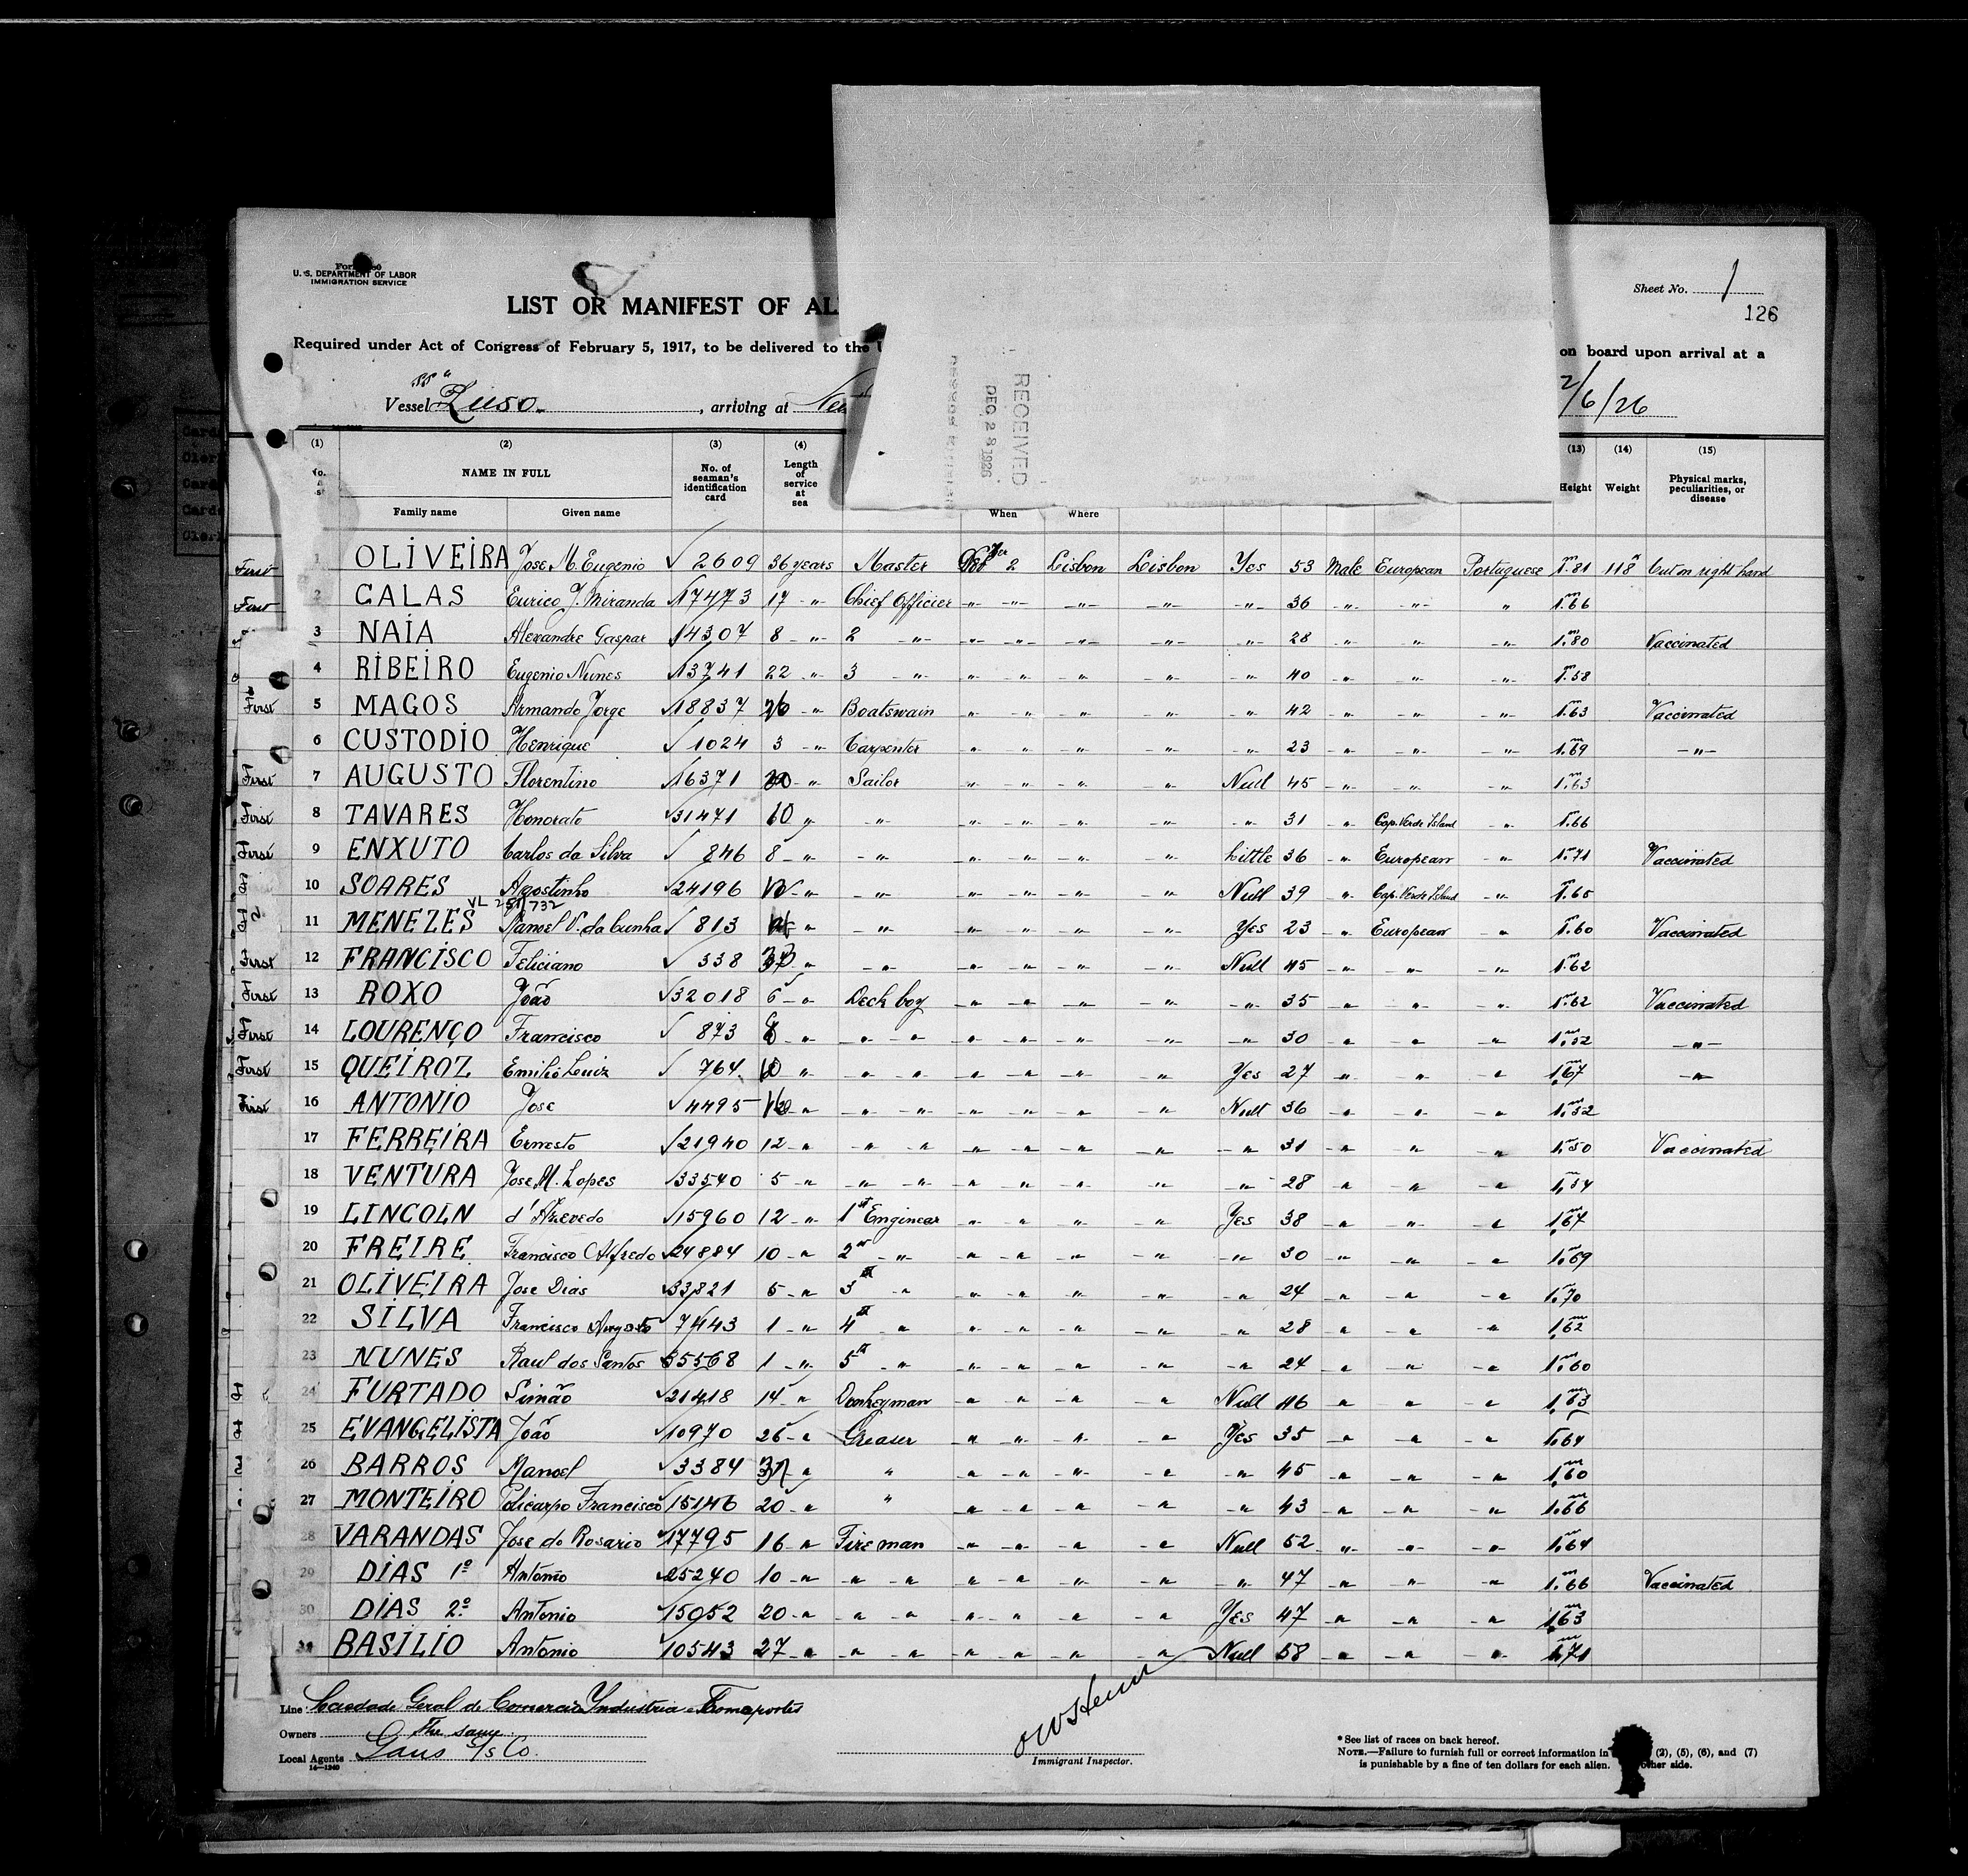 U. S. DEPARTMENT OF LABOR
IMMIGRATION SERVICE
Sheet No. 1
126
LIST OR MANIFEST OF AL
Required under Act of Congress of February 5, 1917, to be delivered to the U
on board upon arrival at a
SS "
Vessel Luso , arriving at New
2/6/26
RECEIVED
DEC 28 1926
(1) (2) (3) (4) (13) (14) (15)
NAME IN FULL
Family name Given name No. of seaman's identification card Length of service at sea When Where Height Weight Physical marks, peculiarities, or disease
First 1 OLIVEIRA Jose M. Eugenio √ 2609 36 years Master 2 Lisbon Lisbon Yes 53 Male European Portuguese 1.m81 118 Cut on right hand
First 2 CALAS Eurico J. Miranda √17473 17 -"- Chief Officier -"- -"- -"- -"- -"- 36 -"- -"- " 1.m66
3 NAIA Alexandre Gaspar √14307 8 -"- 2 -"- -"- -"- -"- -"- -"- 28 -"- -"- -"- 1.m80 Vaccinated
4 RIBEIRO Eugenio Nunes √13741 22 -"- 3 -"- -"- -"- -"- -"- -"- 40 -"- -"- -"- 1.m58
First 5 MAGOS Armando Jorge √18837 26 -"- Boatswain -"- -"- -"- -"- -"- 42 -"- -"- -"- 1.m63 Vaccinated
6 CUSTODIO Henrique √ 1024 3 -"- Carpenter -"- -"- -"- -"- -"- 23 -"- -"- -"- 1.m69 -"-
First 7 AUGUSTO Florentino √16371 20 -"- Sailor -"- -"- -"- -"- Null 45 -"- -"- -"- 1.m63
First 8 TAVARES Honorato √31471 10 " -"- -"- -"- -"- -"- -"- 31 -"- Cap. Verde Island -"- 1.m66
First 9 ENXUTO Carlos da Silva √ 846 8 -"- -"- -"- -"- -"- -"- Little 36 -"- European -"- 1.m71 Vaccinated
10 SOARES Agostinho √24196 -"- -"- -"- -"- -"- -"- Null 39 -"- Cap. Verde Island -"- 1.m65
VL 251/732
11 MENEZES Manoel V. da Cunha √ 813 -"- -"- -"- -"- -"- -"- Yes 23 -"- European -"- 1.m60 Vaccinated
First 12 FRANCISCO Feliciano √ 338 -"- -"- -"- -"- -"- -"- Null 45 -"- -"- -"- 1.m62
First 13 ROXO João √32018 6 -"- Deck boy -"- -"- -"- -"- -"- 35 -"- -"- -"- 1.m62 Vaccinated
First 14 LOURENÇO Francisco √ 873 -"- -"- -"- -"- -"- -"- -"- -"- 30 -"- -"- -"- 1.m52 -"-
First 15 QUEIROZ Emilio Luiz √ 764 10 -"- -"- -"- -"- -"- -"- -"- Yes 27 -"- -"- -"- 1.m67 -"-
First 16 ANTONIO Jose √4495 -"- -"- -"- -"- -"- -"- -"- Null 36 -"- -"- -"- 1.m52
17 FERREIRA Ernesto √21940 12 -"- -"- -"- -"- -"- -"- -"- -"- 31 -"- -"- -"- 1.m50 Vaccinated
18 VENTURA Jose M. Lopes √33540 5 -"- -"- -"- -"- -"- -"- -"- -"- 28 -"- -"- -"- 1.m54
19 LINCOLN d'Azevedo √15960 12 -"- 1st Enginear -"- -"- -"- -"- Yes 38 -"- -"- -"- 1.m67
20 FREIRE Francisco Alfredo √24884 10 -"- 2nd -"- -"- -"- -"- -"- -"- 30 -"- -"- -"- 1.m69
21 OLIVEIRA Jose Dias √33821 5 -"- 3 -"- -"- -"- -"- -"- -"- 24 -"- -"- -"- 1.m70
22 SILVA Francisco Augosto √ 7443 1 -"- 4 -"- -"- -"- -"- -"- -"- 28 -"- -"- -"- 1.m62
23 NUNES Raul dos Santos 35568 1 -"- 5 -"- -"- -"- -"- -"- -"- 24 -"- -"- -"- 1.m60
24 FURTADO Simão √21418 14 -"- Donkeyman -"- -"- -"- -"- Null 46 -"- -"- -"- 1.m63
25 EVANGELISTA João √10970 26 -"- Greaser -"- -"- -"- -"- Yes 35 -"- -"- -"- 1.m64
26 BARROS Manoel √3384 -"- " -"- -"- -"- -"- -"- 45 -"- -"- -"- 1.m60
27 MONTEIRO Policarpo Francisco √15146 20 -"- " -"- -"- -"- -"- -"- 43 -"- -"- -"- 1.m66
28 VARANDAS Jose do Rosario √17795 16 -"- Fire man -"- -"- -"- -"- Null 52 -"- -"- -"- 1.m64
29 DIAS 1º Antonio √25240 10 -"- -"- -"- -"- -"- -"- -"- -"- 47 -"- -"- -"- 1.m66 Vaccinated
30 DIAS 2º Antonio √15052 20 -"- -"- -"- -"- -"- -"- -"- Yes 47 -"- -"- -"- 1.m63
BASILIO Antonio √10543 27 -"- -"- -"- -"- -"- -"- -"- Null 58 -"- -"- -"- 1.m71
Line Sociedade Geral de Comercio Industria e Transportes
Owners The same
Local Agents Gans S/s Co.
14—1240
Immigrant Inspector.
* See list of races on back hereof.
NOTE.—Failure to furnish full or correct information in (2), (5), (6), and (7)
is punishable by a fine of ten dollars for each alien. other side.